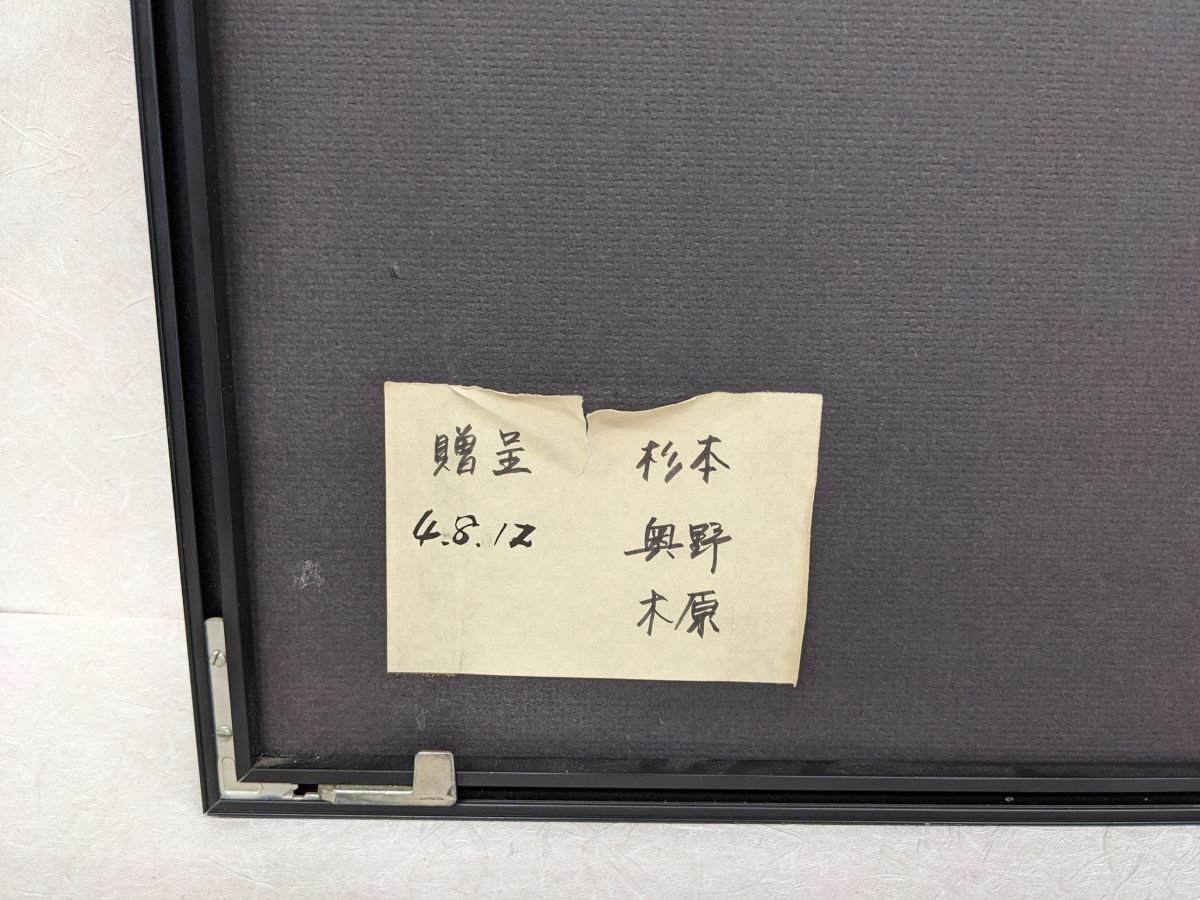 贈呈
4.8.12
杉本
奥野
木原